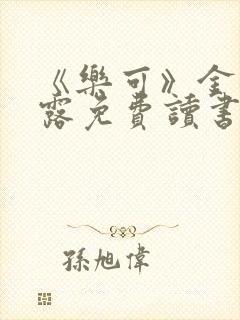 《樂可》全
露免費讀書
孫旭偉